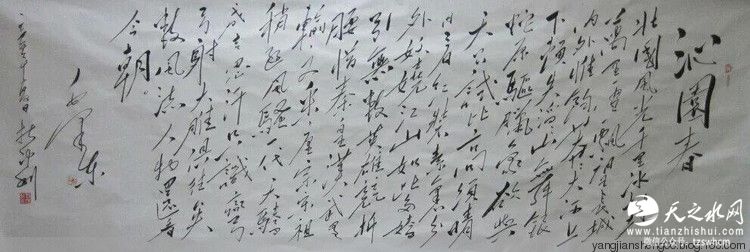 沁園春
北國風光千里冰封
萬里雪飄望長城
内外惟餘莽莽大河上
下頓失滔滔山舞銀
蛇原驅臘象欲與
天公試比高須晴
日看紅裝素裹分
外妖嬈江山如此多嬌
引無數英雄競折
腰惜秦皇漢武略
輸文采唐宗宋祖
稍遜風騷一代天驕
成吉思汗只識彎
弓射大雕俱往矣
數風流人物還看
今朝
毛澤東
天之水网
www.tianzhishui.com
微信公众号：tzswhcm
yangjiansheng00.blog.163.com